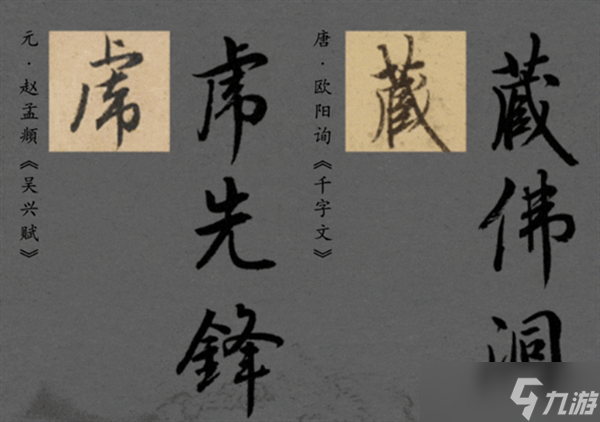 元·赵孟頫《吴兴赋》
虎
虎先鋒
唐·欧阳询《千字文》
藏
藏佛洞
九游